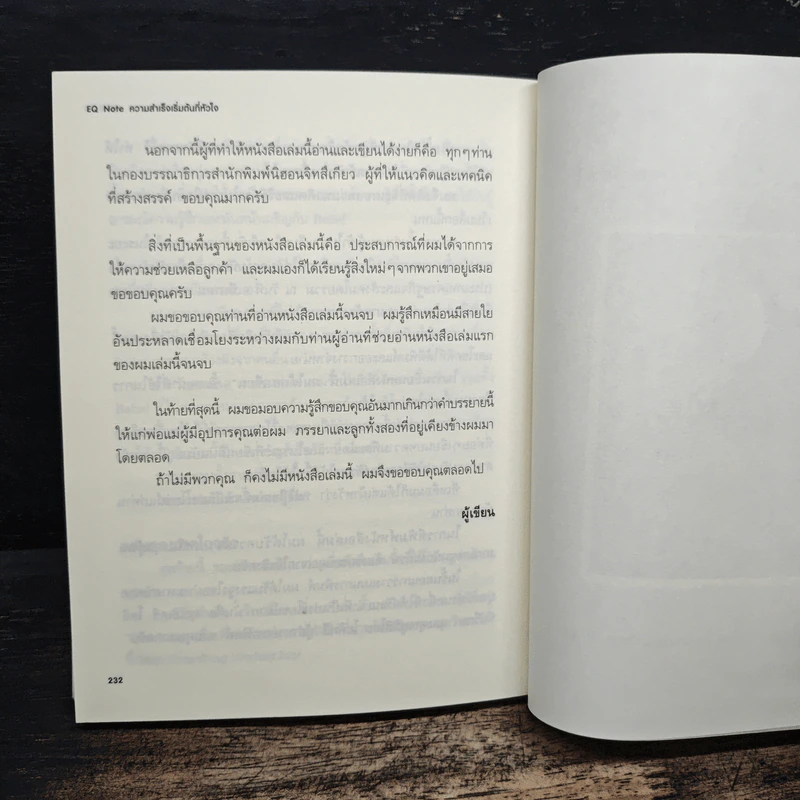 EQ Note ความสำเร็จเริ่มต้นที่หัวใจ
นอกจากนี้ผู้ที่ทำให้หนังสือเล่มนี้อ่านและเขียนได้ง่ายก็คือ ทุกๆท่าน
ในกองบรรณาธิการสำนักพิมพ์นิฮอนจิทสึเกียว ผู้ที่ให้แนวคิดและเทคนิค
ที่สร้างสรรค์ ขอบคุณมากครับ
สิ่งที่เป็นพื้นฐานของหนังสือเล่มนี้คือ ประสบการณ์ที่ผมได้จากการ
ให้ความช่วยเหลือลูกค้า และผมเองก็ได้เรียนรู้สิ่งใหม่ๆจากพวกเขาอยู่เสมอ
ขอขอบคุณครับ
ผมขอขอบคุณท่านที่อ่านหนังสือเล่มนี้จนจบ ผมรู้สึกเหมือนมีสายใย
อันประหลาดเชื่อมโยงระหว่างผมกับท่านผู้อ่านที่ช่วยอ่านหนังสือเล่มแรก
ของผมเล่มนี้จนจบ
ในท้ายที่สุดนี้ ผมขอมอบความรู้สึกขอบคุณอันมากเกินกว่าคำบรรยายนี้
ให้แก่พ่อแม่ผู้มีอุปการคุณต่อผม ภรรยาและลูกทั้งสองที่อยู่เคียงข้างผมมา
โดยตลอด
ถ้าไม่มีพวกคุณ ก็คงไม่มีหนังสือเล่มนี้ ผมจึงขอขอบคุณตลอดไป
ผู้เขียน
232